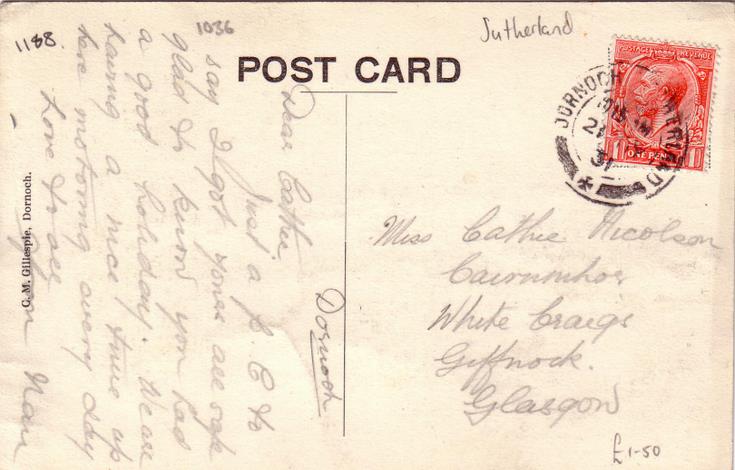 1188.
1036
Sutherland
POST CARD
POSTAGE REVENUE
1 ONE PENNY 1
DORNOCH SUTHERLAND
21
31
Dornoch
Dear Cathie.
Just a P.C to
say I got yours all safe
glad to know you had
a good holiday. We are
having a nice time up
here motoring every day
Love to all
Nan
G. M. Gillespie, Dornoch.
Miss Cathie Nicolson
White Craigs
Giffnock.
Glasgow
£1-50